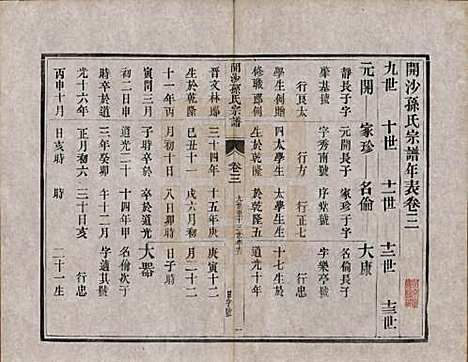 開沙孫氏宗譜年表卷三
九世 十世 十一世 十二世 十三世
元開 家珍 名倫 大康
靜長子字 元開長子 家珍子字 名倫長子
肇基號 字秀南號 序堂號 字樂亭號
行良太 行正七 行忠
學生例贈 四太學生 太學生 十七生於
修職郎例 生於乾隆 於乾隆五 道光十年
開沙孫氏宗譜 卷三
晉文林郎 三十四年 十五年庚 庚寅十二
生於乾隆 戌六月初 月二十二
十一年丙 八日卯時 日子時
寅閏三月 時卒於 卒於道光 大器
初二日申 道光二十 十四年甲 名倫次子
三年癸卯 午十二月 字適其號
光十六年 正月初六 三十日亥 行忠
丙申十月 日亥時 時 二十一生